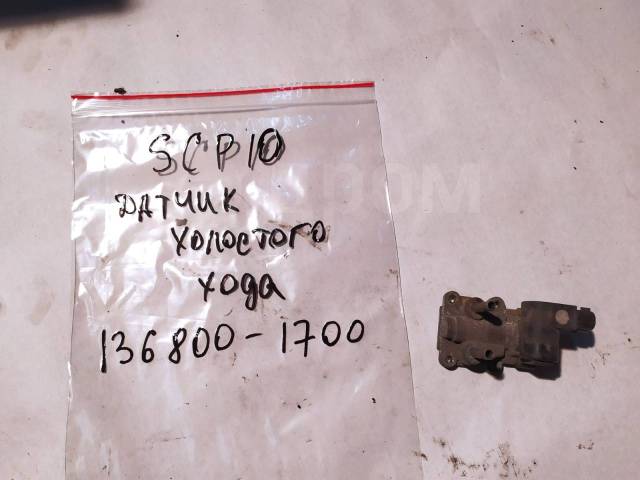 SCP10
ДАТЧИК
холостого
хода
136800-1700